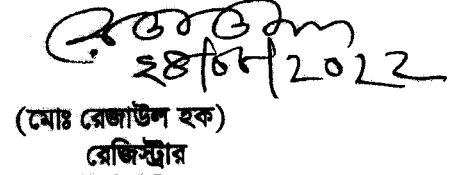 ২৪/০৮/2022
(মোঃ রেজাউল হক)
রেজিস্ট্রার